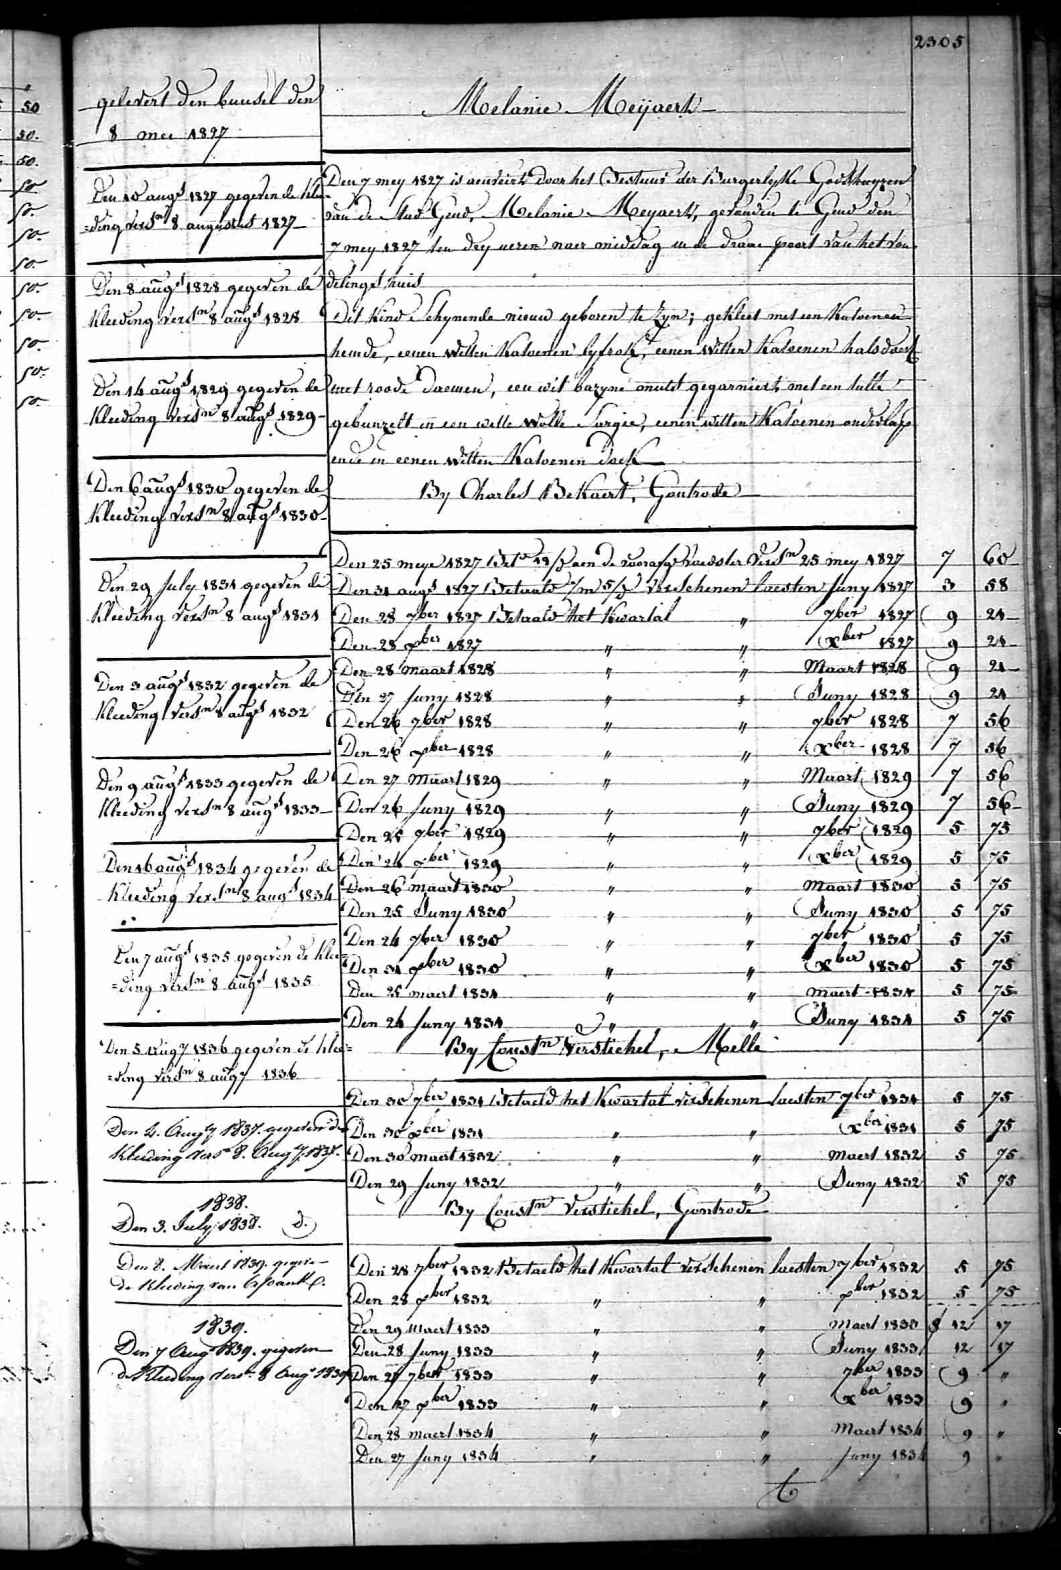 2305
gelevert den bunsel den
8 mei 1827
Den 10 augs 1827 gegeven de klee-
=ding versn 8 augustus 1827
Den 8 augs 1828 gegeven de
kleeding versn 8 augs 1828
Den 14 augs 1829 gegeven de
kleeding versn 8 augs 1829
Den 6 augs 1830 gegeven de
kleeding versn 8 augs 1830
Den 29 July 1831 gegeven de
kleeding versn 8 augs 1831
Den 3 augs 1832 gegeven de
kleeding versn 8 augs 1832
Den 9 augs 1833 gegeven de
kleeding versn 8 augs 1833
Den 16 augs 1834 gegeven de
kleeding versn 8 augs 1834
Den 7 augs 1835 gegeven de klee-
=ding versn 8 augs 1835
Den 5 augs 1836 gegeven de klee=
=ding versn 8 augs 1836
Den 4. Augs 1837. gegeven de
kleeding versn 8. Augs 1837.
1838.
Den 3. July 1838.
Den 8. Meert 1839. gegeve-
de kleeding van
1839.
Den 7 Augs 1839. gegeven
de kleeding versn 8 Augs 1839
Melanie Meijaert
Den 7 mey 1827 is aenveirt door het Bestuur der Burgerlyke Godshuyzen
van de Stad Gend, Melanie Meyaert, gevonden te Gend den
7 mey 1827 ten dry ueren naer middag in de draei poort van het von
delings huis
Dit kind schynende nieuw geboren te zyn; gekleet met een katoenen
hemde, eenen witten katoenen lyfrok, eenen witten katoenen halsdoek
met roode bloemen, een wit bazyne mutst gegarniert met een tulle
gebunzelt in een witte wolle Surgie, eenen witten katoenen onderlage
ende in eenen witten katoenen doek
By Charles BeKaert, Gontrode
Den 25 meye 1827 Betd 19/ aen de voorafge voedster versn 25 mey 1827 7 60
Den 31 augs 1827 Betaald verschenen laesten Juny 1827 3 58
Den 28 7ber 1827 Betaald het Kwartal " 7ber 1827 9 24
Den 28 xber 1827 " " xber 1827 9 24
Den 28 maart 1828 " " Maart 1828 9 24
Den 27 Juny 1828 " " Juny 1828 9 24
Den 26 7ber 1828 " " 7ber 1828 7 56
Den 26 xber 1828 " " xber 1828 7 56
Den 27 Maart 1829 " " Maart 1829 7 56
Den 26 Juny 1829 " " Juny 1829 7 56
Den 25 7ber 1829 " " 7ber 1829 5 75
Den 24 xber 1829 " " xber 1829 5 75
Den 26 maart 1830 " " Maart 1830 5 75
Den 25 Juny 1830 " " Juny 1830 5 75
Den 24 7ber 1830 " " 7ber 1830 5 75
Den 31 xber 1830 " " xber 1830 5 75
Den 25 maert 1831 " " Maert 1831 5 75
Den 24 Juny 1831 " " Juny 1831 5 75
By Constn Verstichel, Melle
Den 30 7ber 1831 Betaeld het Kwartal verschenen laesten 7ber 1831 5 75
Den 30 xber 1831 " " xber 1831 5 75
Den 30 maert 1832 " " Maert 1832 5 75
Den 29 Juny 1832 " " Juny 1832 5 75
By Constn Verstichel, Gontrode
Den 28 7ber 1832 Betaeld het Kwartal verschenen laesten 7ber 1832 5 75
Den 28 xber 1832 " " xber 1832 5 75
Den 29 Maert 1833 " " Maert 1833 12 17
Den 28 Juny 1833 " " Juny 1833 12 17
Den 27 7ber 1833 " " 7ber 1833 9 "
Den 27 xber 1833 " " xber 1833 9 "
Den 28 maert 1834 " " Maert 1834 9 "
Den 27 Juny 1834 " " Juny 1834 9 "